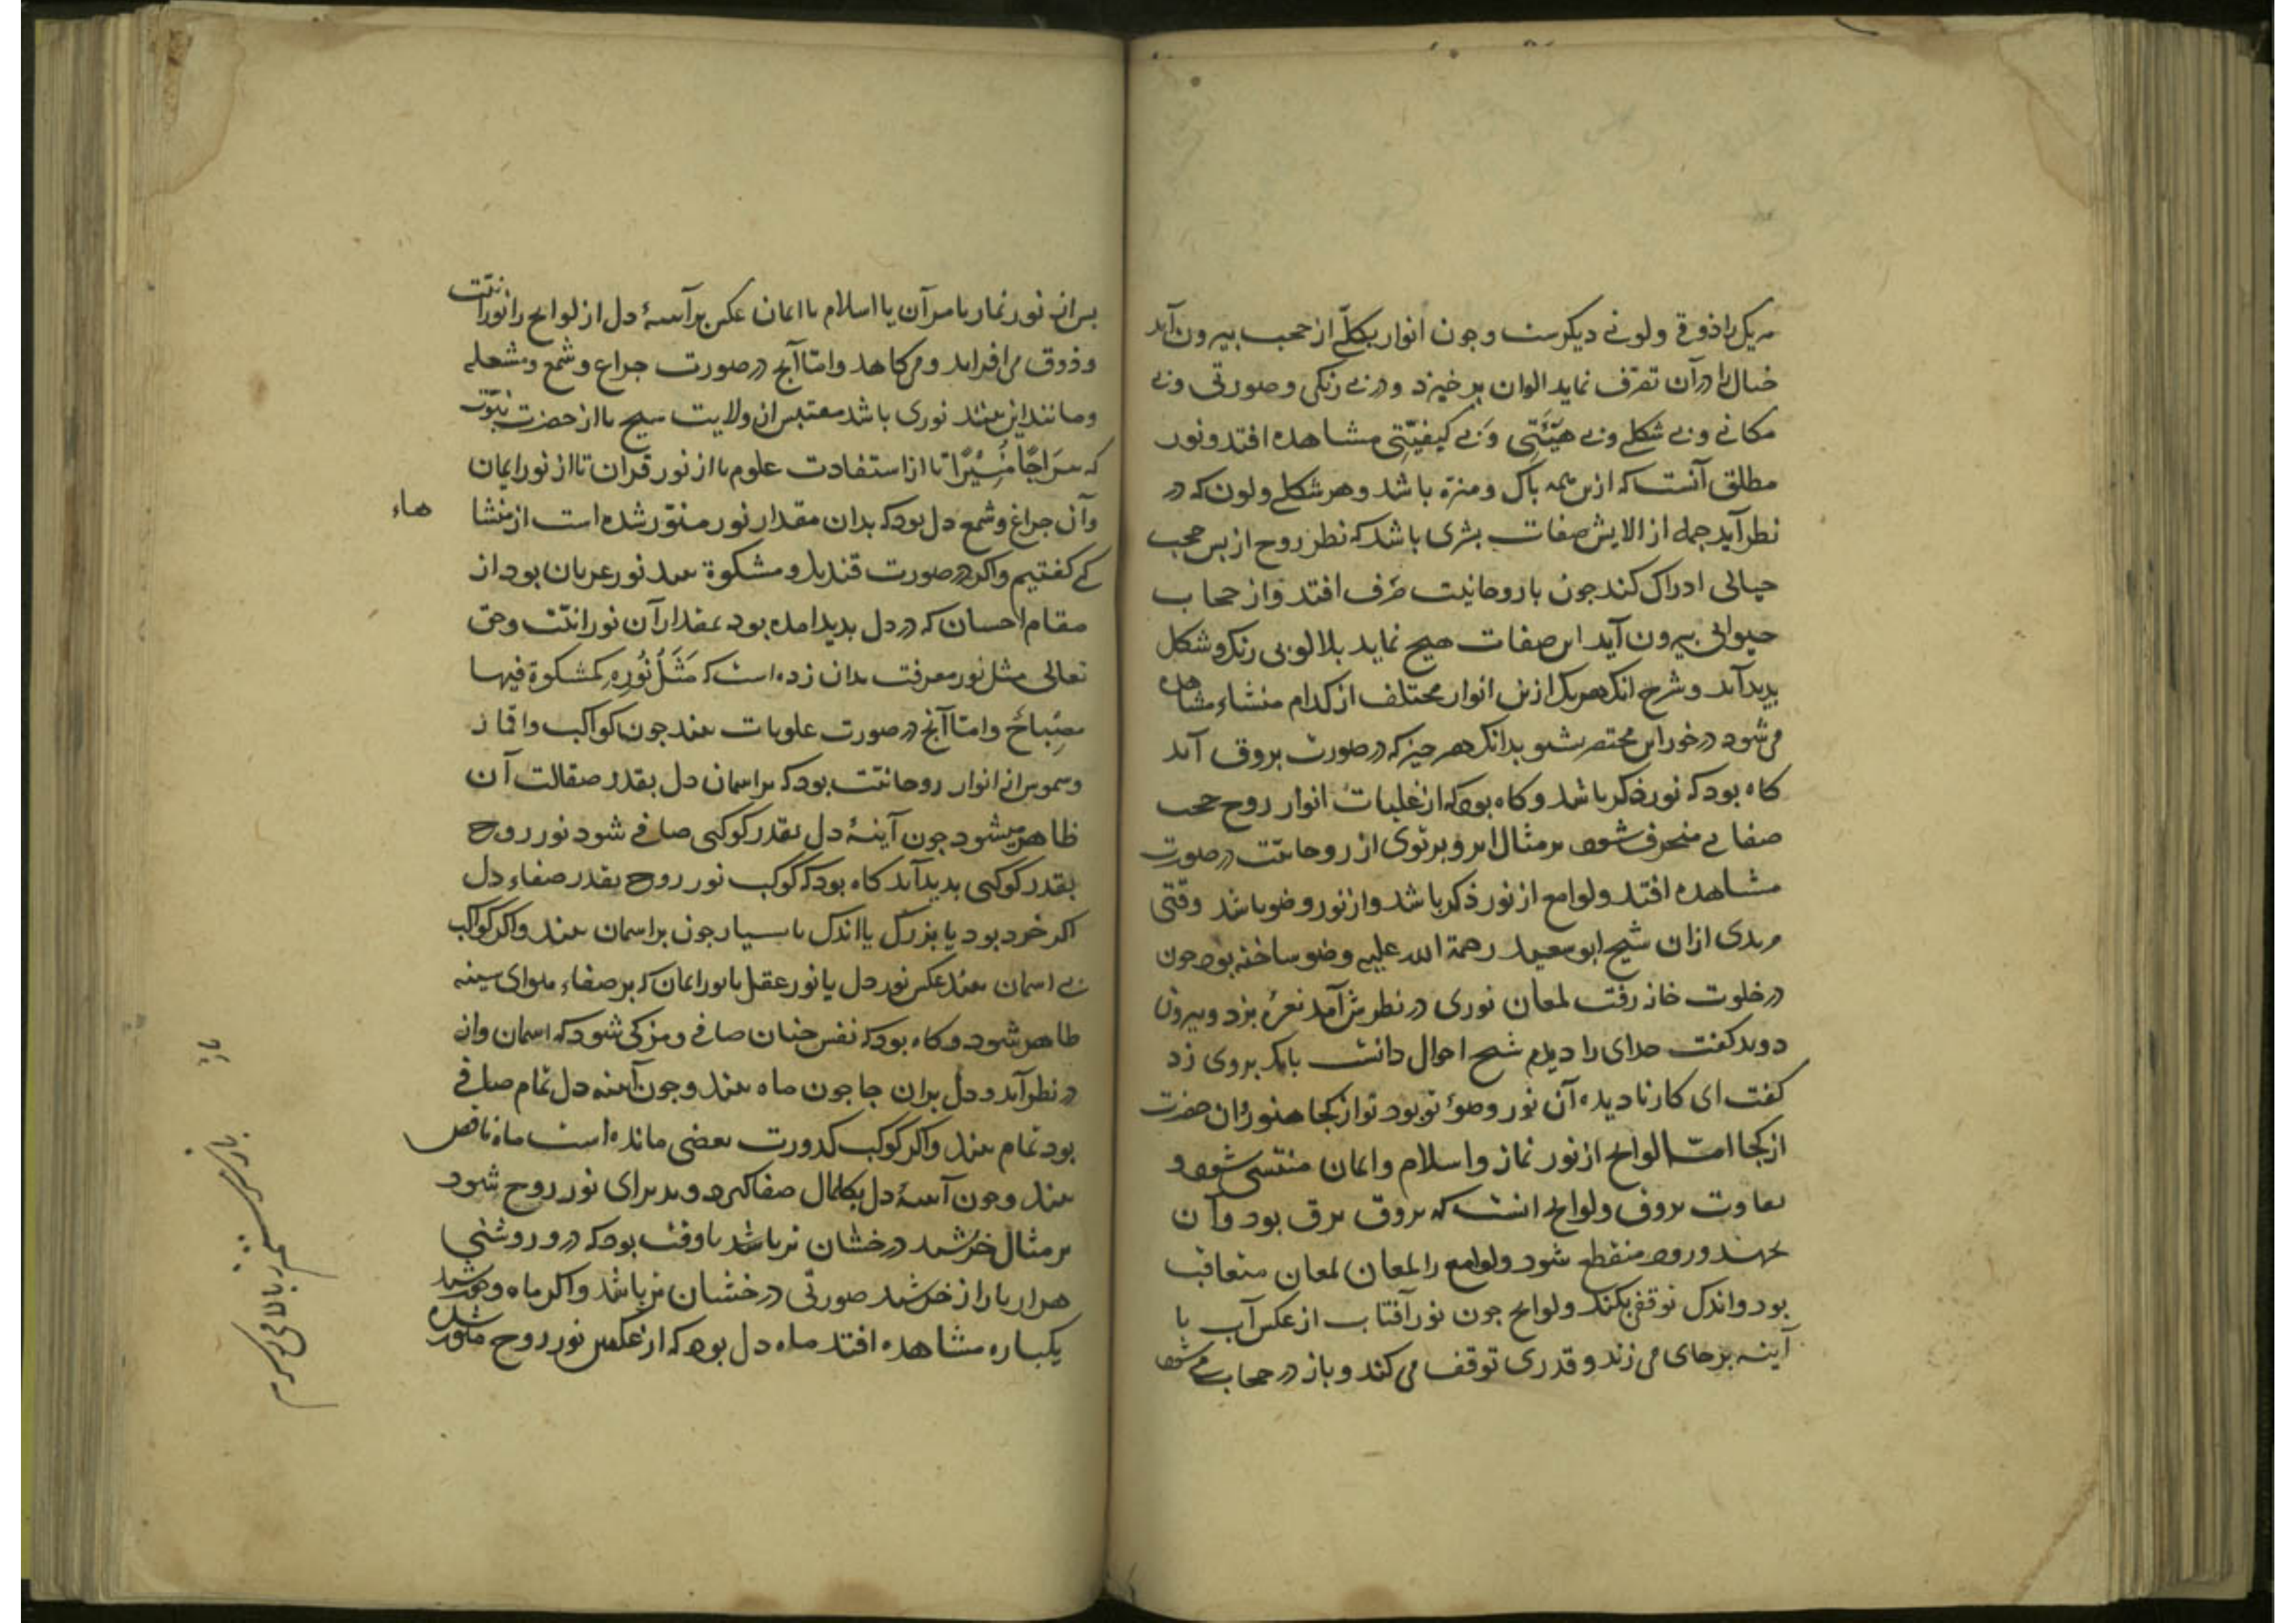 هریک را ذوقی ولونی دیکرست وجون انوار بکلّی از حجب بیرون آید
خیال را در آن تصرّف نماید الوان برخیزد و در بی رنکی وصورتی وبی
مکانی وبی شکلی وبی هیئتی وبی کیفیّتی مشاهده افتد ونور
مطلق آنست که ازین همه باک ومنزه باشد وهر شکل ولون که در
نظر آید جمله از الایش صفات بشری باشد که نظر روح از بس حجب
خیالی ادراک کند جون با روحانیت صرف افتد واز حجاب
حیوانی بیرون آید این صفات هیج نماید بی رنک وشکل
بدید آید وشرح انک هریک ازین انوار مختلف از کدام منشاء مشاهده
می شود در خور این مختصر بشنو بدانک هر جیز که در صورت بروق آید
کاه بود که نور ذکر باشد وکاه بود که از غلبات انوار روح حجب
صفاتی منخرق شود بر مثال ابر وبرتوی از روحانیّت در صورت
مشاهده افتد ولوامع از نور ذکر باشد واز نور وضو باشد وقتی
مریدی ازان شیخ ابو سعید رحمة الله علیه وضو ساخته بود جون
در خلوت خانه رفت لمعان نوری در نظرش آمد نعرهٔ بزد وبیرون
دوید کفت خدای را دیدم شیخ احوال دانست بانک بروی زد
کفت ای کار نادیده آن نور وضوء تو بود تو از کجا هنوز وان حضرت
از کجا امّا لوایح از نور نماز واسلام وایمان منتشی شود و
تفاوت بروق ولوایح انست که بروق برق بود وآن
بجهد وزود منقطع شود ولوامع را لمعان لمعان متعاقب
بود واندک توقفی بکند ولوایح جون نور آفتاب از عکس آب یا
آینه بر جای می زند وقدری توقف می کند وباز در حجاب می شود
بس ان نور نماز یا قرآن یا اسلام یا ایمان عکس بر آینهٔ دل از لوایح را نورانیّت
وذوق می افزاید ومی کاهد وامّا آنج در صورت جراغ وشمع ومشعله
ومانند این بیند نوری باشد مقتبس از ولایت شیخ یا از حضرت نبوّت
که سِرَاجًا مُنِیْرًا یا از استفادت علوم یا از نور قران یا از نور ایمان
وآن جراغ وشمع دل بود که بدان مقدار نور منوّر شده است از منشا هاء
کی کفتیم واکر در صورت قندیل و مشکوة بیند نور عرفان بود از
مقام احسان که در دل بدید امده بود بمقدار آن نورانیّت وحق
تعالی مثل نور معرفت بدان زده است که مَثَلُ نُورِهِ کمشکوة فیها
مِصْبَاحٌ وامّا آنج در صورت علویات بیند جون کواکب واقمار
وشموس ان انوار روحانیّت بود که بر اسمان دل بقدر صقالت آن
ظاهر میشود جون آینهٔ دل بقدر کوکبی صافی شود نور روح
بقدر کوکبی بدید آید کاه بود که کوکب نور روح بقدر صفاء دل
اکر خرد بود یا بزرک یا اندک یا بسیار جون بر اسمان بیند واکر کواکب
بی اسمان بیند عکس نور دل یا نور عقل یا نور ایمان که بر صفاء هوای سینه
ظاهر شود وکاه بود که نفس جنان صافی ومزکی شود که اسمان وار
در نظر آید ودل بران جا جون ماه بیند وجون آینه دل تمام صافی
بود تمام بیند واکر کوکب کدورت بعضی مانده است ماه ناقص
بیند وجون آینهٔ دل بکمال صفا کیرد وبذیرای نور روح شود
بر مثال خرشید درخشان تر باشد یا وقت بود که در و روشنی
هزار بار از خرشید صورتی درخشان تر باشد واکر ماه وخورشید
یکباره مشاهده افتد ماه دل بود که از عکس نور روح منوّر شده